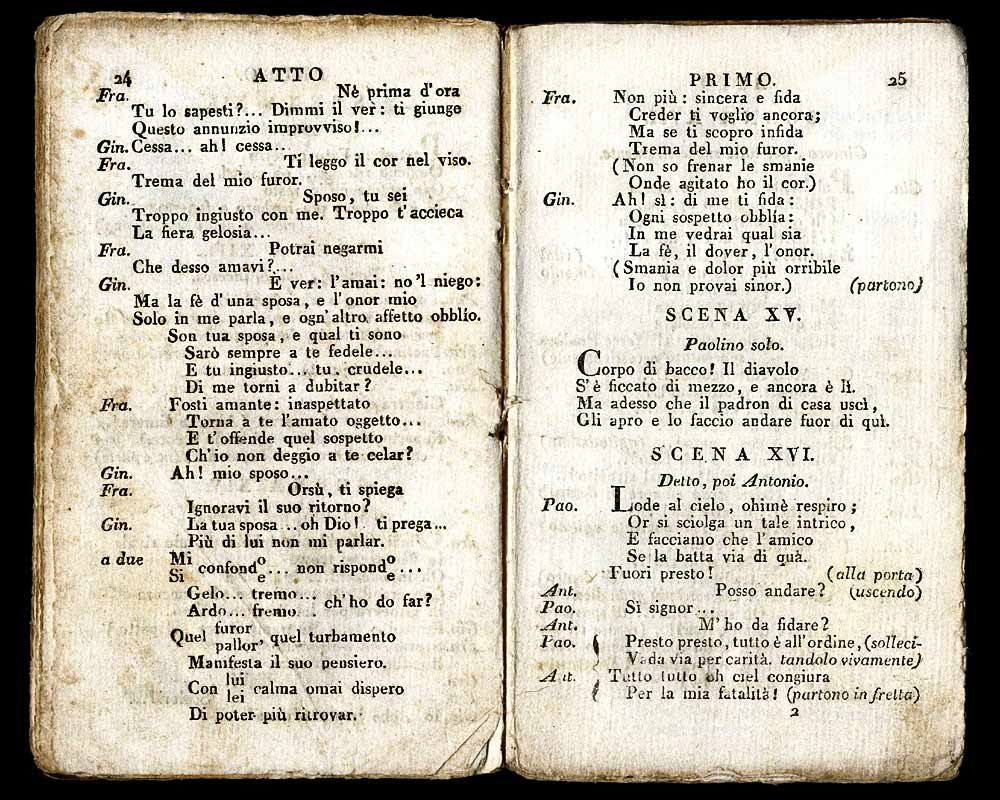 24 ATTO
Fra. Nè prima d'ora
Tu lo sapesti?... Dimmi il ver: ti giunge
Questo annunzio improvviso!...
Gin. Cessa... ah! cessa...
Fra. Ti leggo il cor nel viso.
Trema del mio furor.
Gin. Sposo, tu sei
Troppo ingiusto con me. Troppo t'accieca
La fiera gelosia...
Fra. Potrai negarmi
Che desso amavi?...
Gin. E ver: l'amai: no'l niego:
Ma la fè d'una sposa, e l'onor mio
Solo in me parla, e ogn'altro affetto obblío.
Son tua sposa, e qual ti sono
Sarò sempre a te fedele...
E tu ingiusto... tu. crudele...
Di me torni a dubitar?
Fra. Fosti amante: inaspettato
Torna a te l'amato oggetto...
E t'offende quel sospetto
Ch'io non deggio a te celar?
Gin. Ah! mio sposo...
Fra. Orsù, ti spiega
Ignoravi il suo ritorno?
Gin. La tua sposa... oh Dio! ti prega...
Più di lui non mi parlar.
a due Mi confondo... non rispondo...
Si e e
Gelo... tremo... ch'ho do far?
Ardo... fremo...
Quel furor, quel turbamento
pallor
Manifesta il suo pensiero.
Con lui calma omai dispero
lei
Di poter più ritrovar.
PRIMO. 25
Fra. Non più: sincera e fida
Creder ti voglio ancora;
Ma se ti scopro infida
Trema del mio furor.
(Non so frenar le smanie
Onde agitato ho il cor.)
Gin. Ah! sì: di me ti fida:
Ogni sospetto obblía:
In me vedrai qual sia
La fè, il dover, l'onor.
(Smania e dolor più orribile
Io non provai sinor.) (partono)
SCENA XV.
Paolino solo.
Corpo di bacco! Il diavolo
S'è ficcato di mezzo, e ancora è lì.
Ma adesso che il padron di casa uscì,
Gli apro e lo faccio andare fuor di quì.
SCENA XVI.
Detto, poi Antonio.
Pao. Lode al cielo, ohimè respiro;
Or si sciolga un tale intrico,
E facciamo che l'amico
Se la batta via di quà.
Fuori presto! (alla porta)
Ant. Posso andare? (uscendo)
Pao. Sì signor...
Ant. M'ho da fidare?
Pao. Presto presto, tutto è all'ordine, (solleci-
Vada via per carità. tandolo vivamente)
Ant. Tutto tutto oh ciel congiura
Per la mia fatalità! (partono in fretta)
2